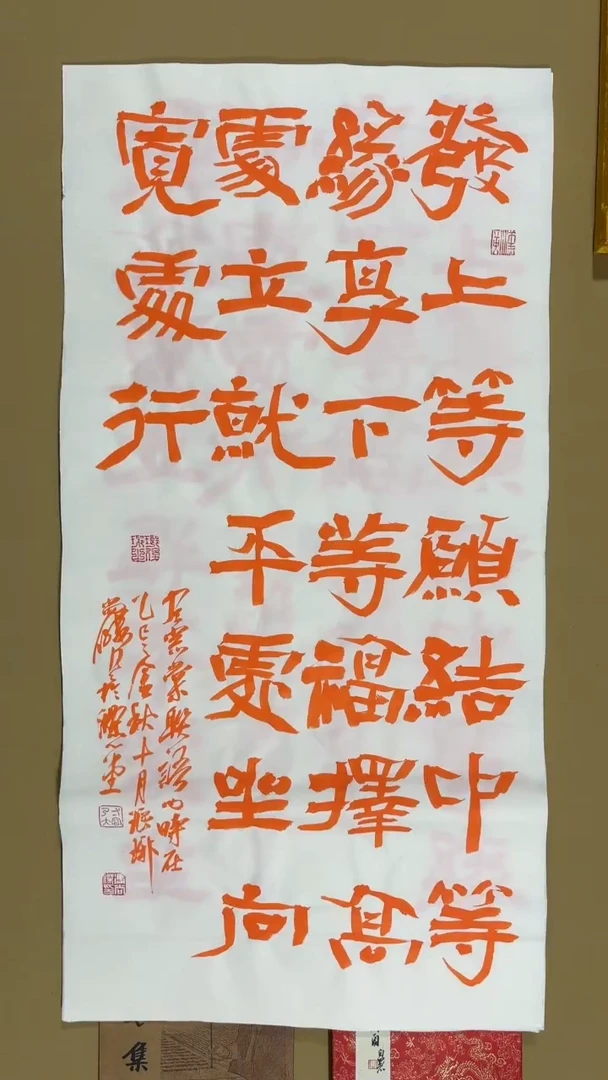 發上等願結中等
緣享下等福擇高
處立就平處坐向
寬處行
左宗棠聯語也時在
乙巳之金秋十月
集